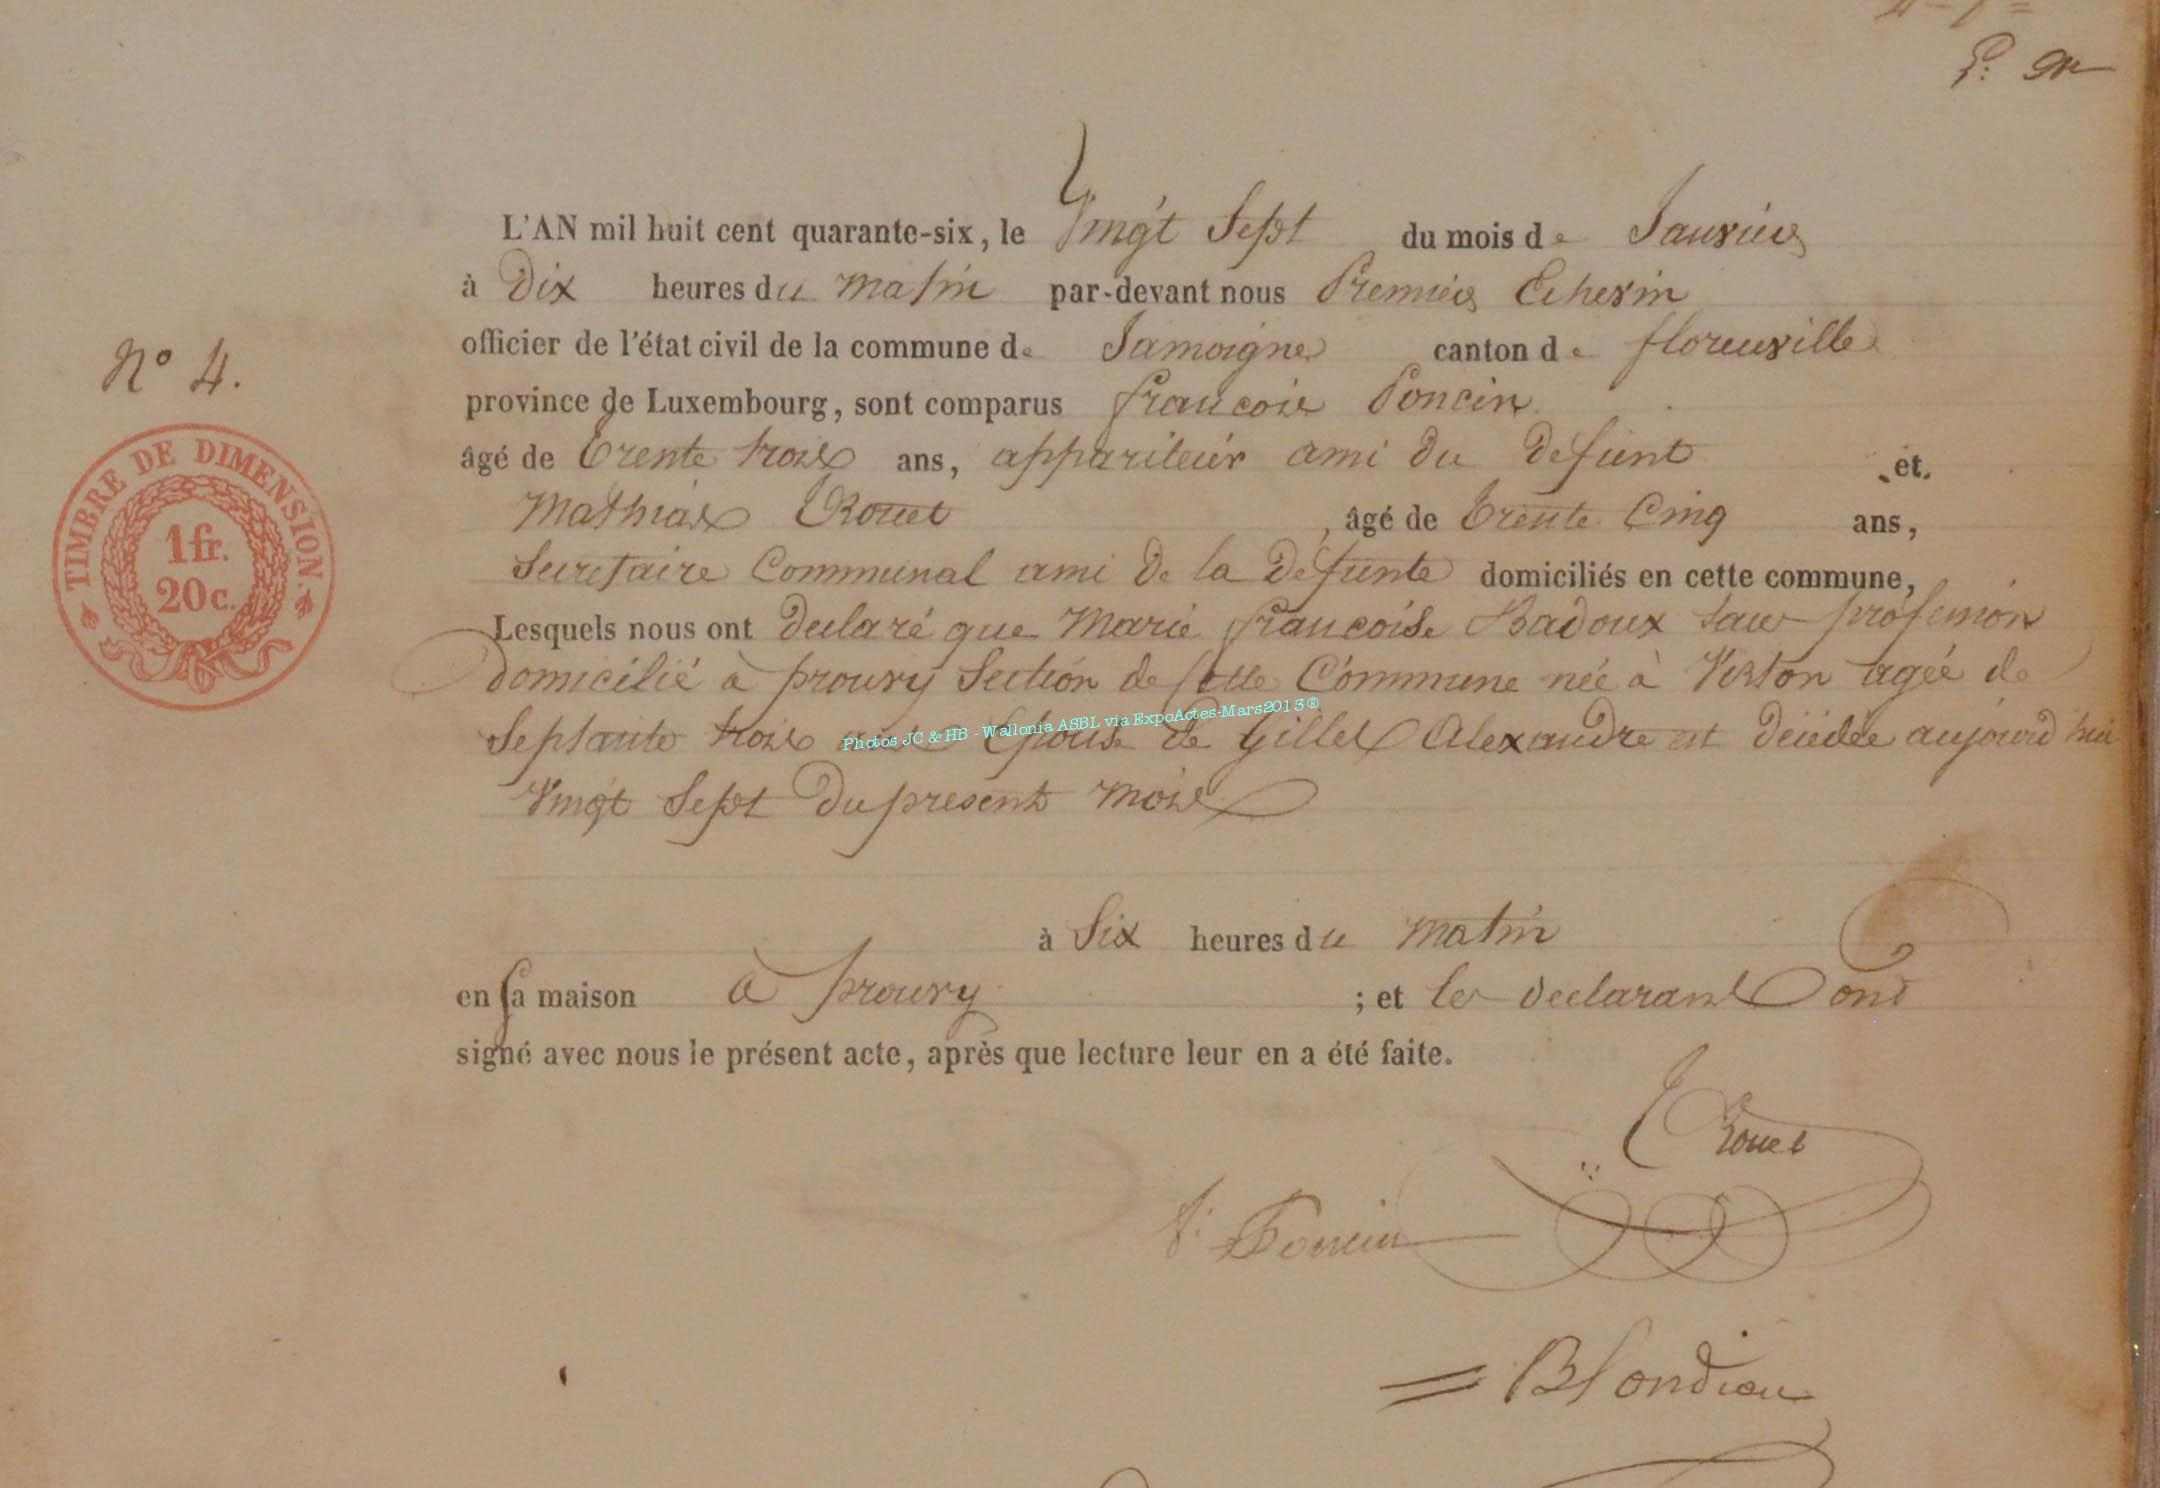 L'AN mil huit cent quarante-six, le Vingt Sept du mois de Janvier
à Dix heures du matin par-devant nous Premier Echevin
officier de l'état civil de la commune de Jamoigne canton de florenville
province de Luxembourg, sont comparus francois Poncin
âgé de Trente trois ans, appariteur ami du defunt et
N° 4.
Mathias Rouet, âgé de Trente Cinq ans,
TIMBRE DE DIMENSION.
1 fr.
20 c.
Secretaire Communal ami de la defunte domiciliés en cette commune,
Lesquels nous ont declaré que Marie francoise Badoux sans profession
domicilié à prouvy Section de cette Commune née à Virton agée de
Septante trois ans Epouse de Gilles Alexandre est décédée aujourd'hui
Photos JC & HB - Wallonia ASBL via ExpoActes-Mars2013®
Vingt Sept du present mois
à Six heures du matin
en sa maison à prouvy ; et les declarants ont
signé avec nous le présent acte, après que lecture leur en a été faite.
Rouet
f: Poncin
= Blondiau